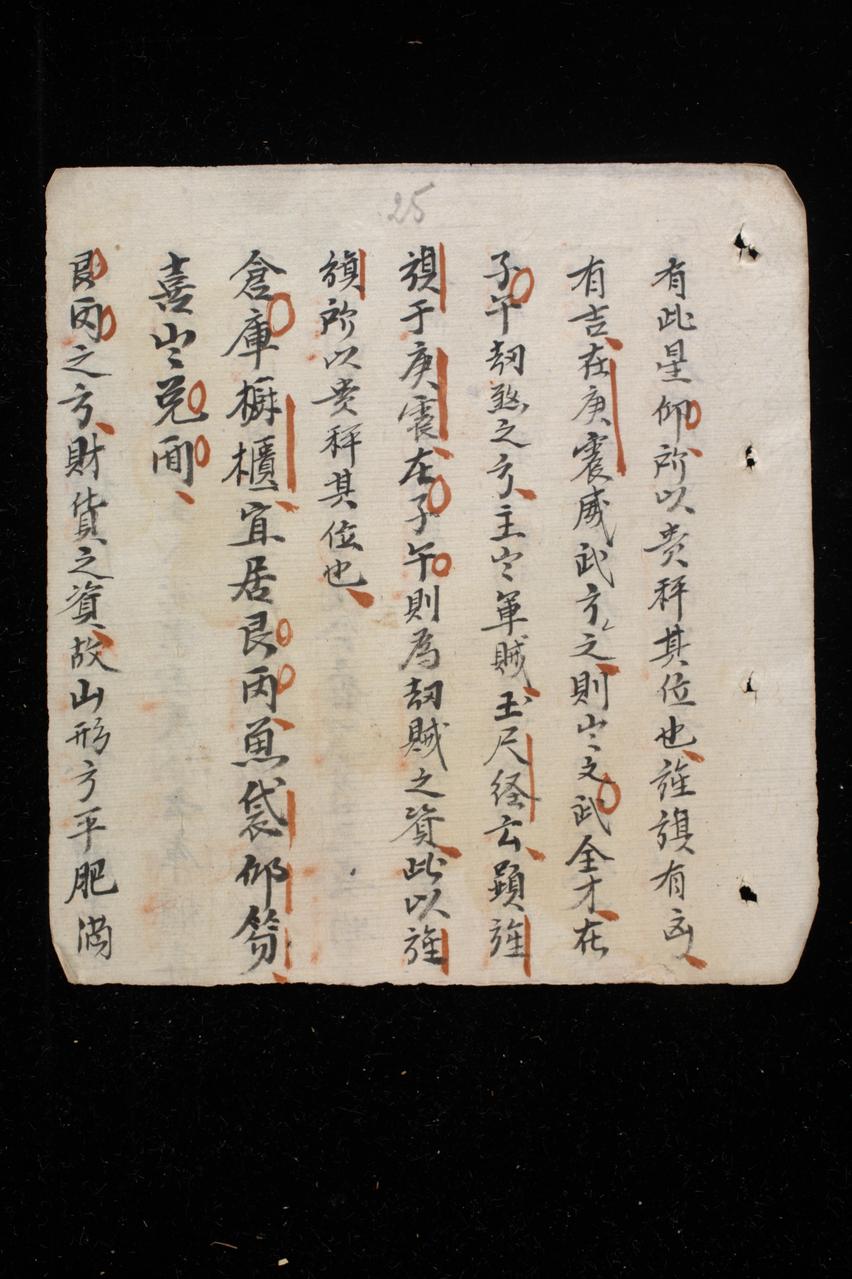 25
有此星仰所以贵秤其位也旌旗有凶
有吉在庚震威武方之則出文武全才在
子午刼煞之方主出軍賊玉尺経云顕旌
旗于庚震在子午則為刼賊之資此以旌
旗所以贵秤其位也
倉庫橱櫃宜居艮丙魚袋仰笏
喜出兌酉
艮丙之方財貨之資故山形方平肥满